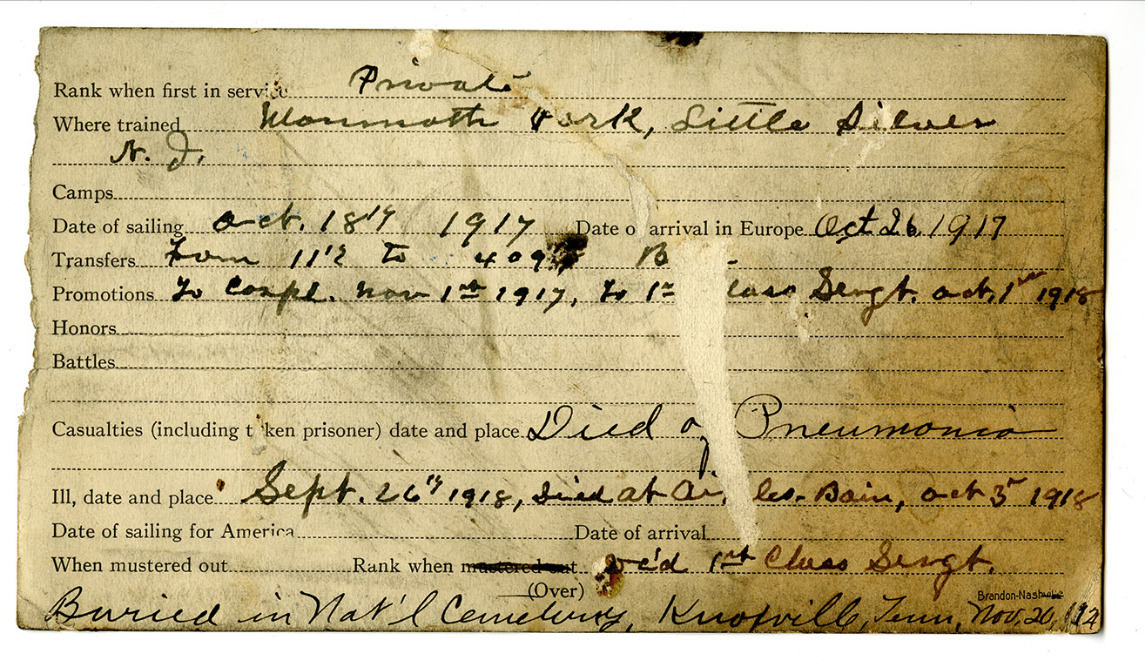 Rank when first in service Private
Where trained Monmouth Park, Little Silver
N. J.
Camps
Date of sailing Oct. 18th 1917 Date o arrival in Europe Oct 26 1917
Transfers From 11th to 409th B
Promotions To Corpl. Nov 1st 1917, To 1st lass Sergt. Oct. 1st 1918
Honors
Battles
Casualties (including t ken prisoner) date and place Died of Pneumonia
Ill, date and place Sept. 26th 1918, Died at Ai les-Bain, Oct 5 1918
Date of sailing for America Date of arrival
When mustered out Rank when mustered out Dec'd 1st Class Sergt.
(Over)
Brandon-Nashville
Buried in Nat'l Cemetery, Knoxville, Tenn, Nov. 20, 192